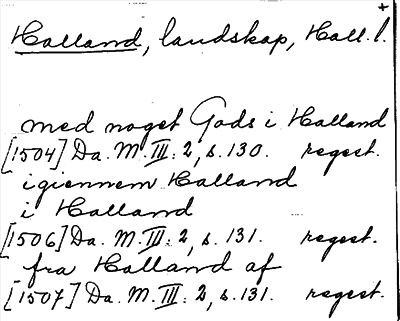 +
Halland, landskap, Hall. l.
med noget Gods i Halland
[1504] Da. M. III: 2, s. 130. regest.
igiennem Halland
i Halland
[1506] Da. M. III: 2, s. 131. regest.
fra Halland af
[1507] Da. M. III: 2, s. 131. regest.